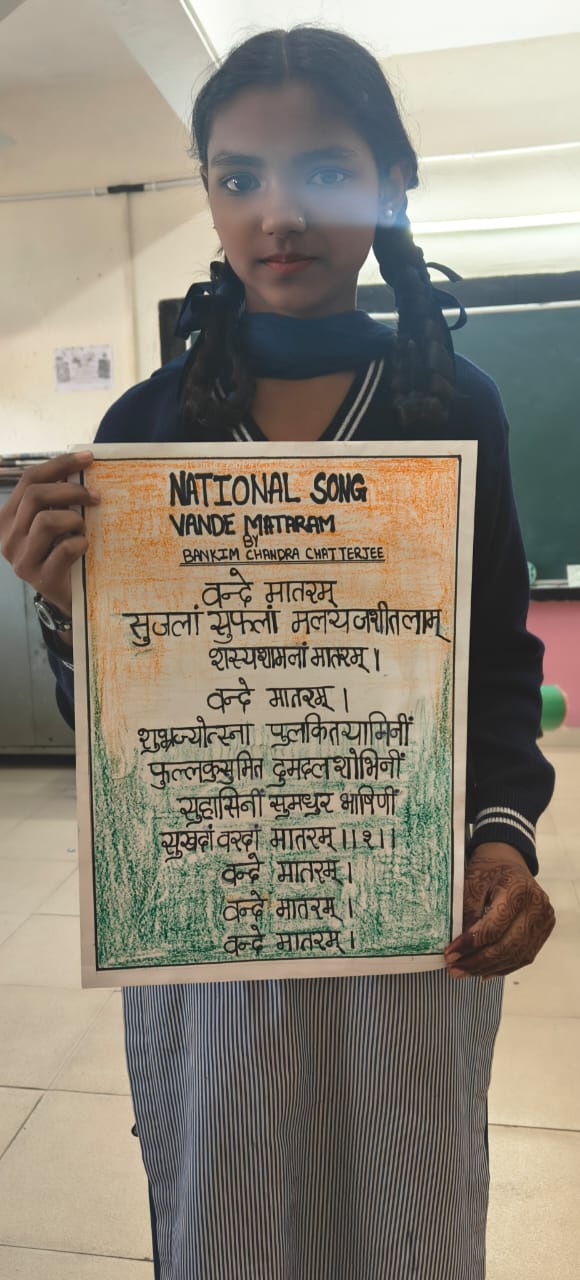 NATIONAL SONG
VANDE MATARAM
BY
BANKIM CHANDRA CHATTERJEE
वन्दे मातरम्
सुजलां सुफलां मलयजशीतलाम्
शस्यशामलां मातरम् ।
वन्दे मातरम् ।
शुभ्रज्योत्स्ना पुलकितयामिनीं
फुल्लकुसुमित द्रुमदलशोभिनीं
सुहासिनीं सुमधुर भाषिणीं
सुखदां वरदां मातरम् ।।१।।
वन्दे मातरम् ।
वन्दे मातरम् ।
वन्दे मातरम् ।